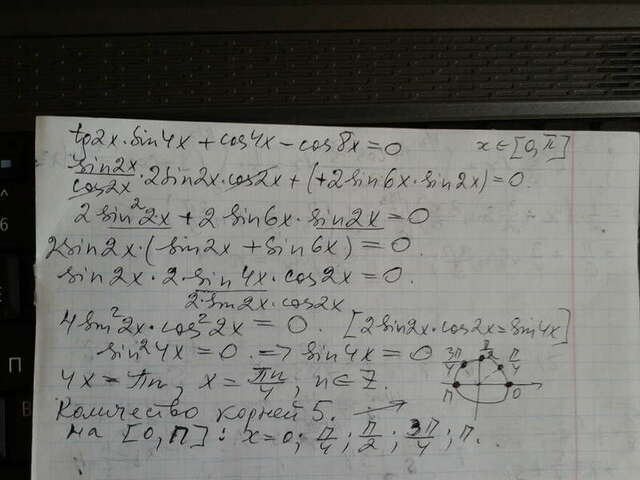 tg2x·sin4x + cos4x − cos8x = 0 x∈[0,π]
sin2x/cos2x · 2sin2x·cos2x + (+2sin6x·sin2x) = 0.
2sin²2x + 2sin6x·sin2x = 0
2sin2x·(sin2x + sin6x) = 0.
sin2x·2·sin4x·cos2x = 0.
2·sin2x·cos2x
4sin²2x·cos²2x = 0. [2sin2x·cos2x=sin4x]
sin²4x = 0. => sin4x = 0
4x = πn, x = πn/4, n∈Z.
3π/4 π/2 π/4
π 0
Количество корней 5.
на [0,π]: x=0; π/4; π/2; 3π/4; π.